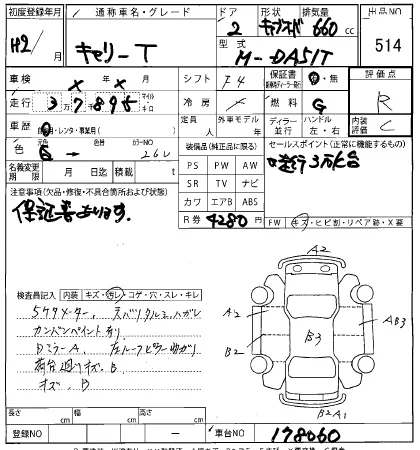 初度登録年月 通称車名・グレード ドア 形状 排気量 出品NO
H2/ 月 キャリーT 2 キャブオーバ 660 cc 514
型式 M-DA51T
車検 × 月 × 日 シフト F4 保証書 有・無 評価点
走行 37895 マイル キロ 冷房 燃料 G R
車歴 自家用・レンタ・事業用( ) 定員 人 外車モデル 年 ディーラー 並行 ハンドル 左・右 内装 C
色 元色 色替 カラーNO 26U 装備品(純正品に限る) セールスポイント(正常に機能するもの)
名義変更期限 月 日迄 積載 t PS PW AW 走行3万k台
注意事項(欠品・修復・不具合箇所および状態) SR TV ナビ
保証書あります。 カワ エアB ABS
R券 4280円 FW キズ・ヒビ割・リペア跡・X要
A2
検査員記入 内装 キズ・汚レ・コゲ・穴・スレ・キレ
5ケタメーター、 A2 AB3
カンバンペイント有り B3
DミラーA、 B2
荷台廻りキズ、B
キズ、B
B2A1
長さ cm 幅 cm 高さ cm
登録NO ー 車台NO 178060